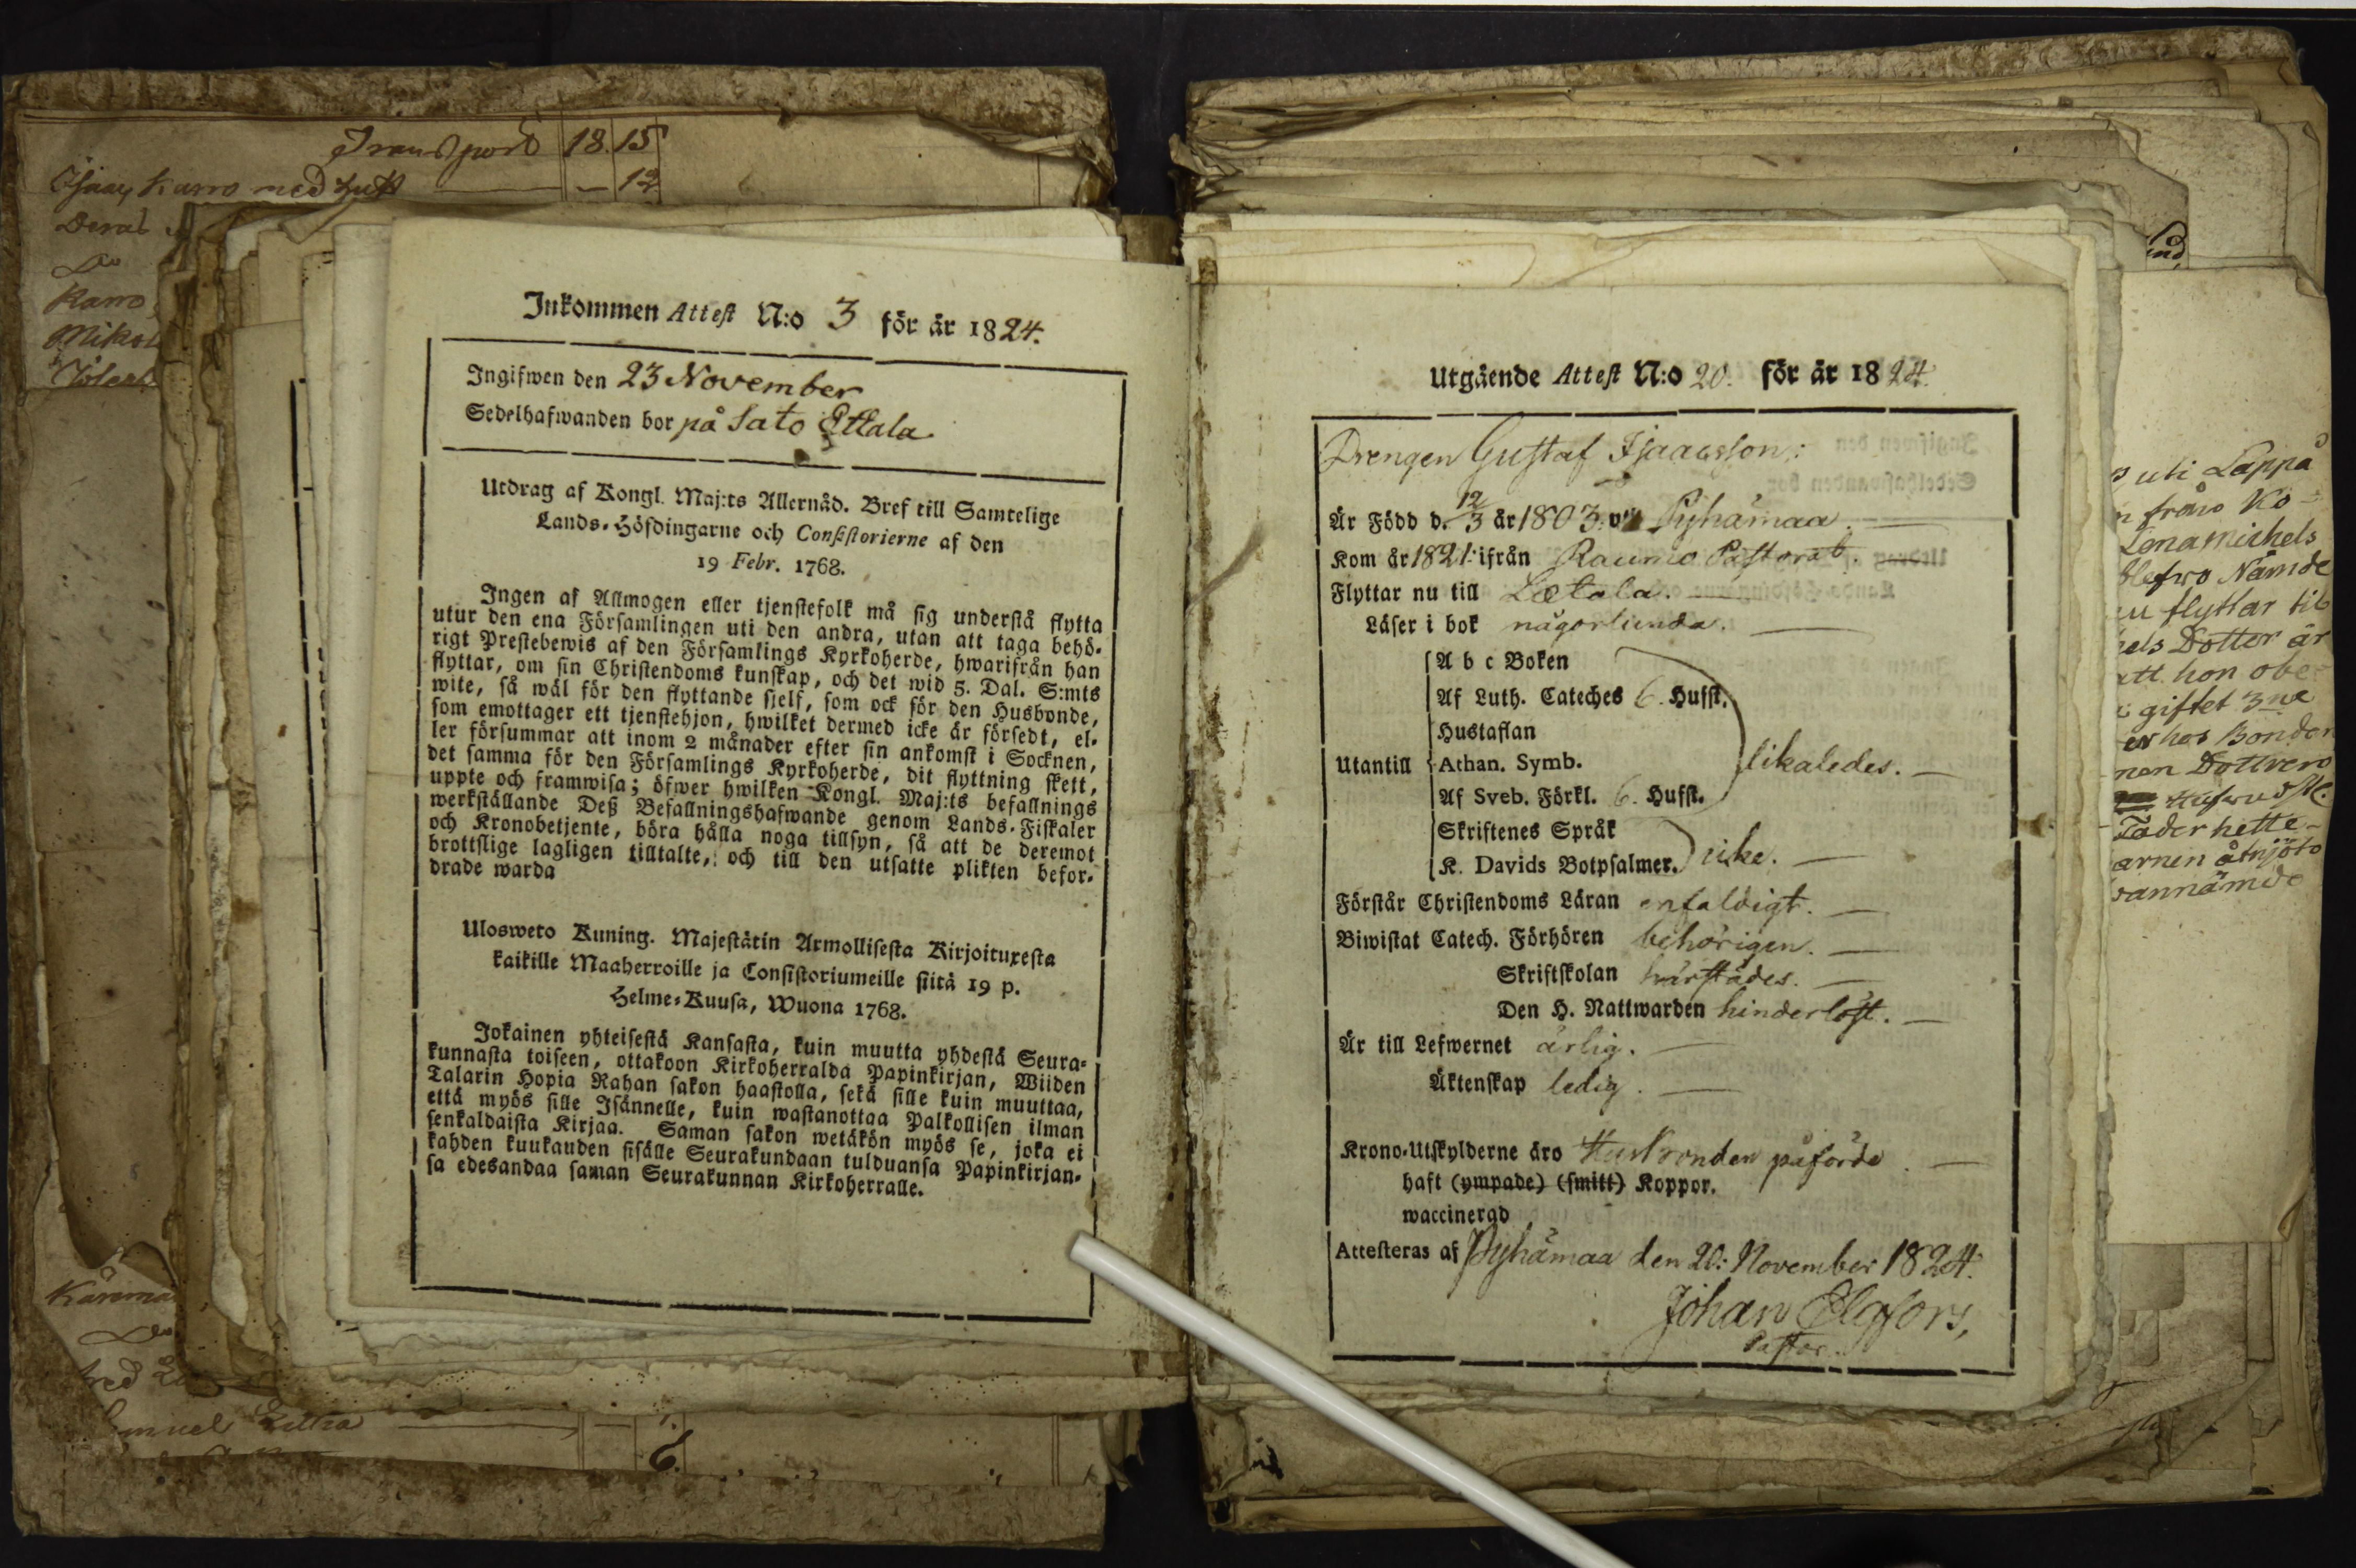 Transport 18. 15
Karro med — — 12
Karro
Inkommen Attest N:o 3 för år 1824.
Ingifwen den 23 November
Sedelhafwanden bor på Sato Ettala
Utdrag af Kongl. Maj:ts Allernåd. Bref till Samtelige
Lands-Höfdingarne och Consistorierne af den
19 Febr. 1768.
Ingen af Allmogen eller tjenstefolk må sig understå flytta
utur den ena Församlingen uti den andra, utan att taga behö-
rigt Prestebewis af den Församlings Kyrkoherde, hwarifrån han
flyttar, om sin Christendoms kunskap, och det wid 5. Dal. S:mts
wite, så wäl för den flyttande sjelf, som ock för den Husbonde,
som emottager ett tjenstehjon, hwilket dermed icke är försedt, el-
ler försummar att inom 2 månader efter sin ankomst i Socknen,
det samma för den Församlings Kyrkoherde, dit flyttning skett,
uppte och framwisa; öfwer hwilken Kongl. Maj:ts befallnings
werkställande Deß Befallningshafwande genom Lands-Fiskaler
och Kronobetjente, böra hålla noga tillsyn, så att de deremot
brottslige lagligen tilltalte, och till den utsatte plikten befor-
drade warda
Ulosweto Kuning. Majestätin Armollisesta Kirjoituxesta
kaikille Maaherroille ja Consistoriumeille siitä 19 p.
Helme-Kuusa, Wuona 1768.
Jokainen yhteisestä Kansasta, kuin muutta yhdestä Seura-
kunnasta toiseen, ottakoon Kirkoherralda Papinkirjan, Wiiden
Talarin Hopia Rahan sakon haastolla, sekä sille kuin muuttaa,
että myös sille Isännelle, kuin wastanottaa Palkollisen ilman
senkaldaista Kirjaa. Saman sakon wetäkön myös se, joka ei
kahden kuukauden sisälle Seurakundaan tulduansa Papinkirjan-
sa edesandaa saman Seurakunnan Kirkoherralle.
6.
Utgående Attest N:o 20. för år 1824.
Drengen Gustaf Isaacsson:
Är Född d. 12/3 år 1803. Pyhämaa. —
Kom år 1821. ifrån Raumo Pastorat.
Flyttar nu till Letala. —
Läser i bok någorlunda. —
A b c Boken
Af Luth. Cateches 6. Hufst.
Hustaflan
Utantill Athan. Symb. likaledes. —
Af Sveb. Förkl. 6. Hufst.
Skriftenes Språk
K. Davids Botpsalmer. icke. —
Förstår Christendoms Läran enfaldigt. —
Biwistat Catech. Förhören behörigen. —
Skriftskolan härstädes. —
Den H. Nattwarden hinderlöst. —
Är till Lefwernet ärlig. —
Äktenskap ledig. —
Krono-Utskylderne äro Husbonden påförde. —
haft (ympade) (smitt) Koppor.
waccinerad
Attesteras af Pyhämaa den 20: November 1824.
Johan Elgfors,
Pastor.
uti Lappå
från Ko-
Lena Michels
Nämde
flyttar till
Dotter är
att hon obe-
giftet 3ne
hos Bonden
hette